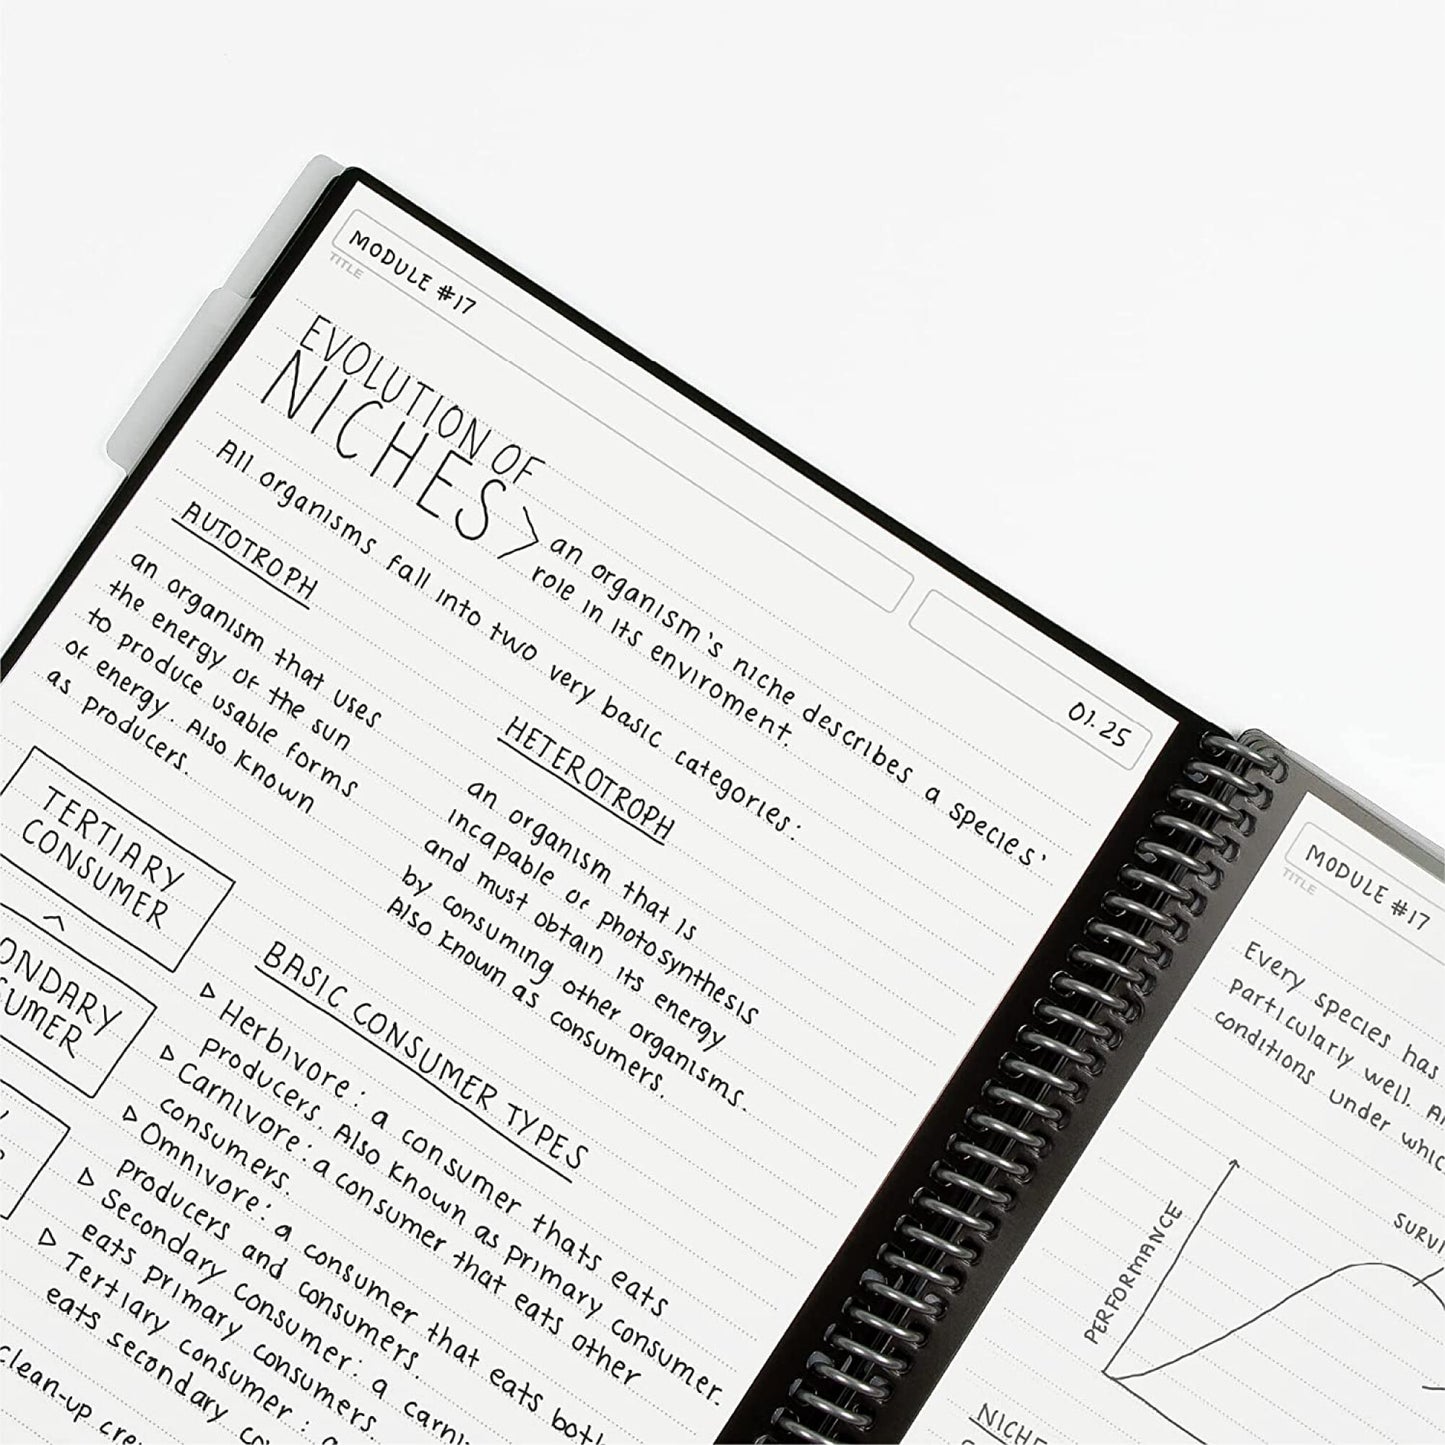 MODULE #17
TITLE
01.25
EVOLUTION OF
NICHES
an organism's niche describes a species'
role in its enviroment.
All organisms fall into two very basic categories:
AUTOTROPH
an organism that uses
the energy of the sun
to produce usable forms
of energy. Also known
as producers.
HETEROTROPH
an organism that is
incapable of photosynthesis
and must obtain its energy
by consuming other organisms.
Also known as consumers.
TERTIARY
CONSUMER
BASIC CONSUMER TYPES
Herbivore: a consumer thats eats
producers. Also known as primary consumer.
Carnivore: a consumer that eats other
consumers.
Omnivore: a consumer that eats both
producers and consumers.
Secondary consumer: a
eats primary consumers.
Tertiary consumer: a
eats secondary
clean-up
MODULE #17
TITLE
Every species has
particularly well.
conditions under
PERFORMANCE